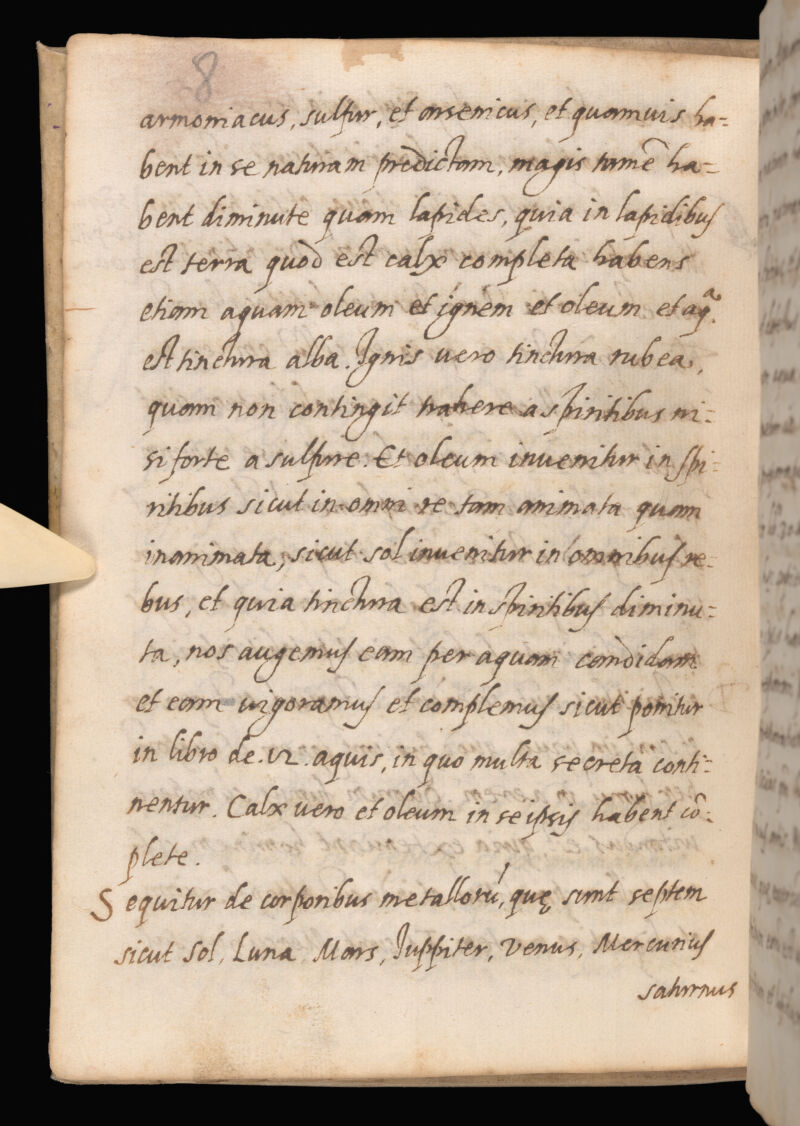 8
armoniacus, sulfur, et arsenicus, et quamuis ha-
bent in se naturam predictam, magis tamẽ ha-
bent diminute quam lapides, quia in lapidibus
est terra quod est calx completa habens
etiam aquam oleum et ignem et oleum et aqᷓ.
est tinctura alba. Ignis vero tinctura rubea,
quam non contingit trahere a spiritibus ni-
si forte a sulfure. Et oleum inuenitur in spi-
ritibus sicut in omni re tam animata quam
inanimata, sicut sol inuenitur in omnibus re-
bus, et quia tinctura est in spiritibus diminu-
ta, nos augemus eam per aquam candidam
et eam uigoramus et complemus sicut ponitur
in libro de .12. aquis, in quo multa secreta conti-
nentur. Calx vero et oleum in seipsis habent cõ-
plete.
Sequitur de corporibus metallorũ, quę sunt septem
sicut Sol, Luna Mars, Juppiter, Venus, Mercurius
saturnus